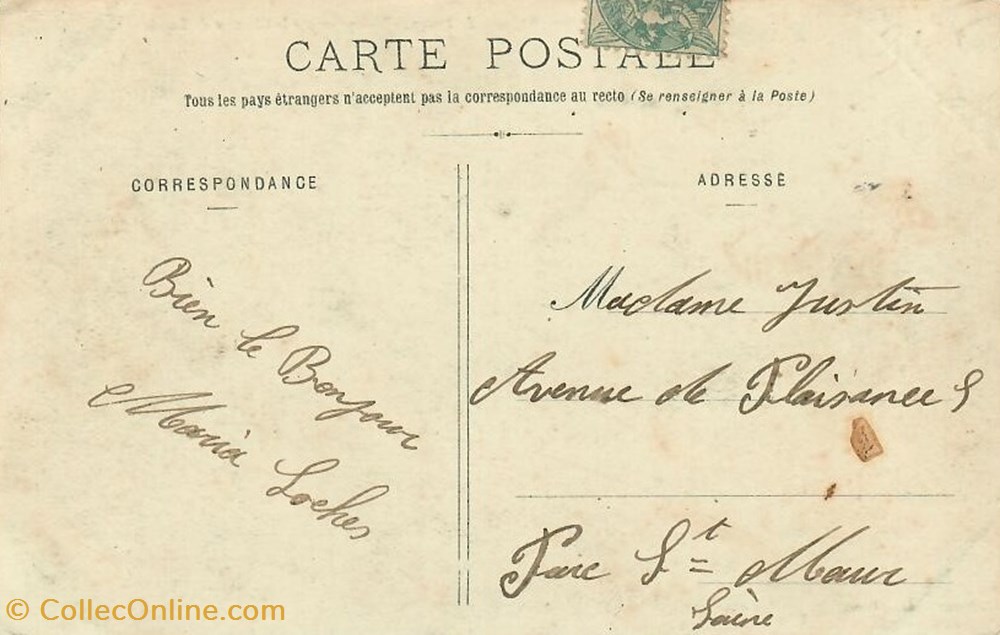 CARTE POSTALE
Tous les pays étrangers n'acceptent pas la correspondance au recto (Se renseigner à la Poste)
CORRESPONDANCE
Bien le Bonjour
Maria Loches
ADRESSE
Madame Justin
Avenue de Plaisance 9
Parc St Maur
Seine
© CollecOnline.com